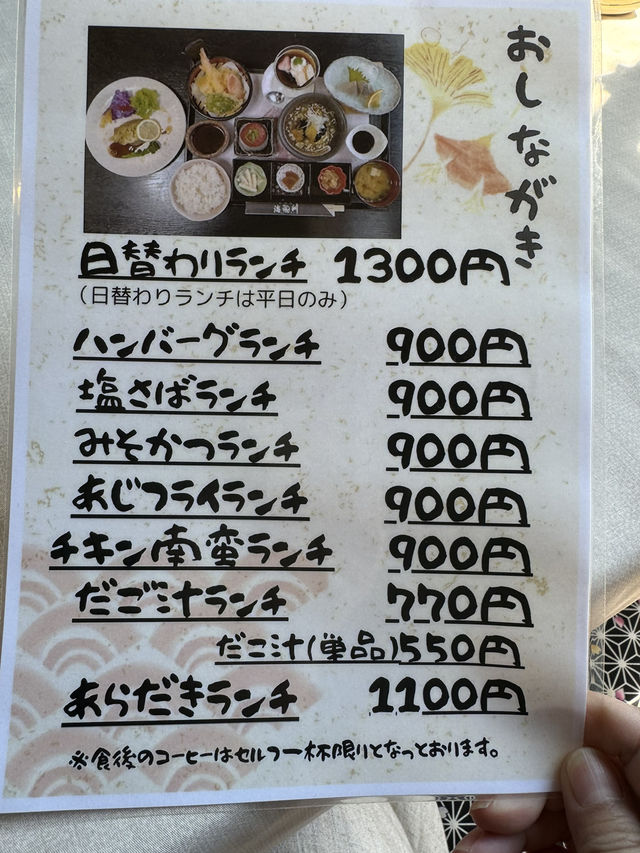 おしながき
日替わりランチ 1300円
（日替わりランチは平日のみ）
ハンバーグランチ 900円
塩さばランチ 900円
みそかつランチ 900円
あじフライランチ 900円
チキン南蛮ランチ 900円
だご汁ランチ 770円
だご汁(単品) 550円
あらだきランチ 1100円
※食後のコーヒーはセルフ一杯限りとなっております。